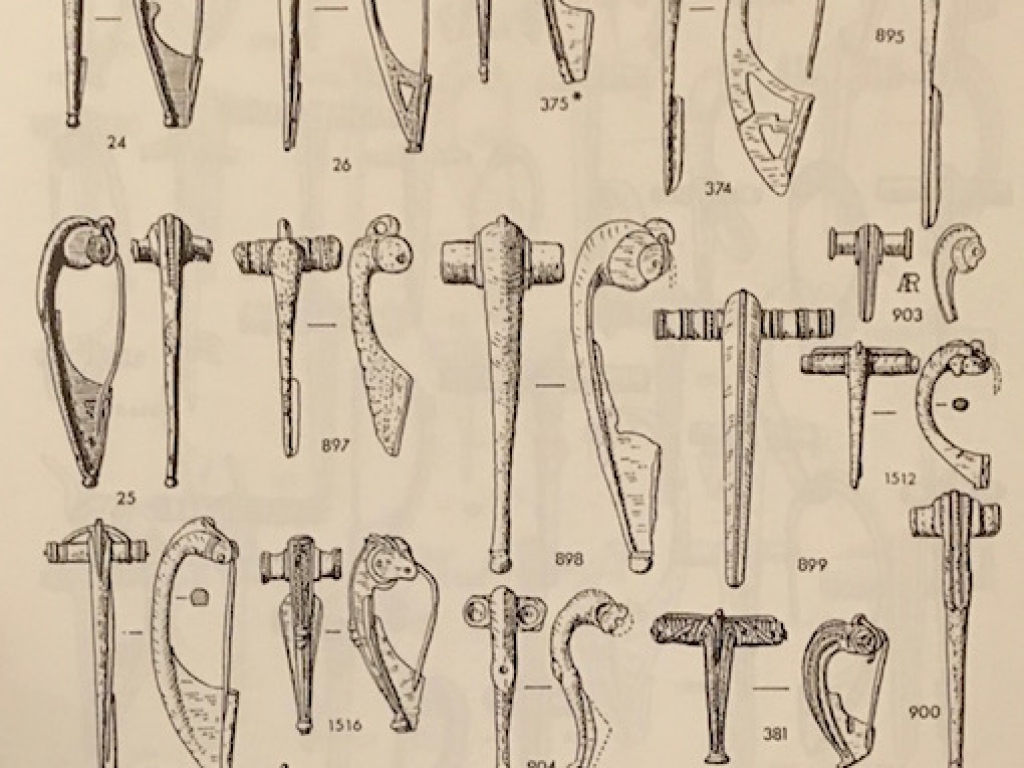 895
375*
24
26
374
ÆR
903
897
1512
25
898
899
1516
381
900